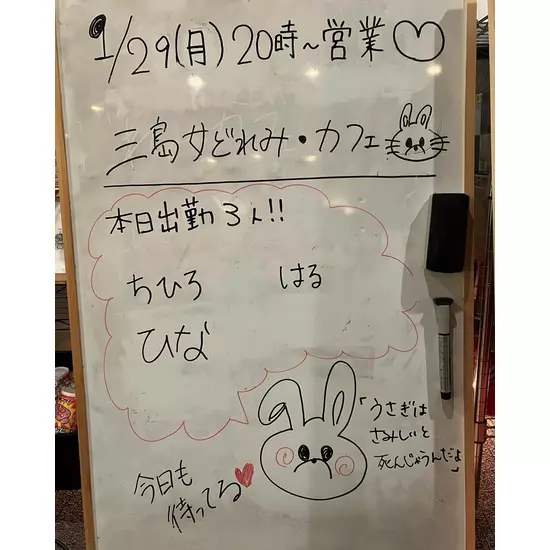 1/29(月)20時~営業♡
三島女どれみ・カフェ
本日出勤3人!!
ちひろ はる
ひな
「うさぎは
さみしいと
死んじゃうんだよ」
今日も
待ってる♥